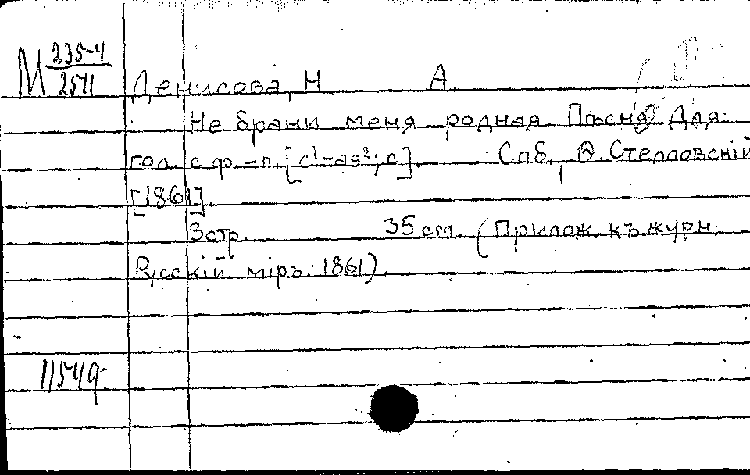 М 235-4
2511
Денисова, Н А
Не брани меня родная. Пѣсня. Для
гол. с ф.-п. [c¹-as²; c]. Спб., Ѳ. Стелловскій
[1861].
3 стр. 35 cm. (Прилож. къ журн.
Русскій міръ. 1861).
11549